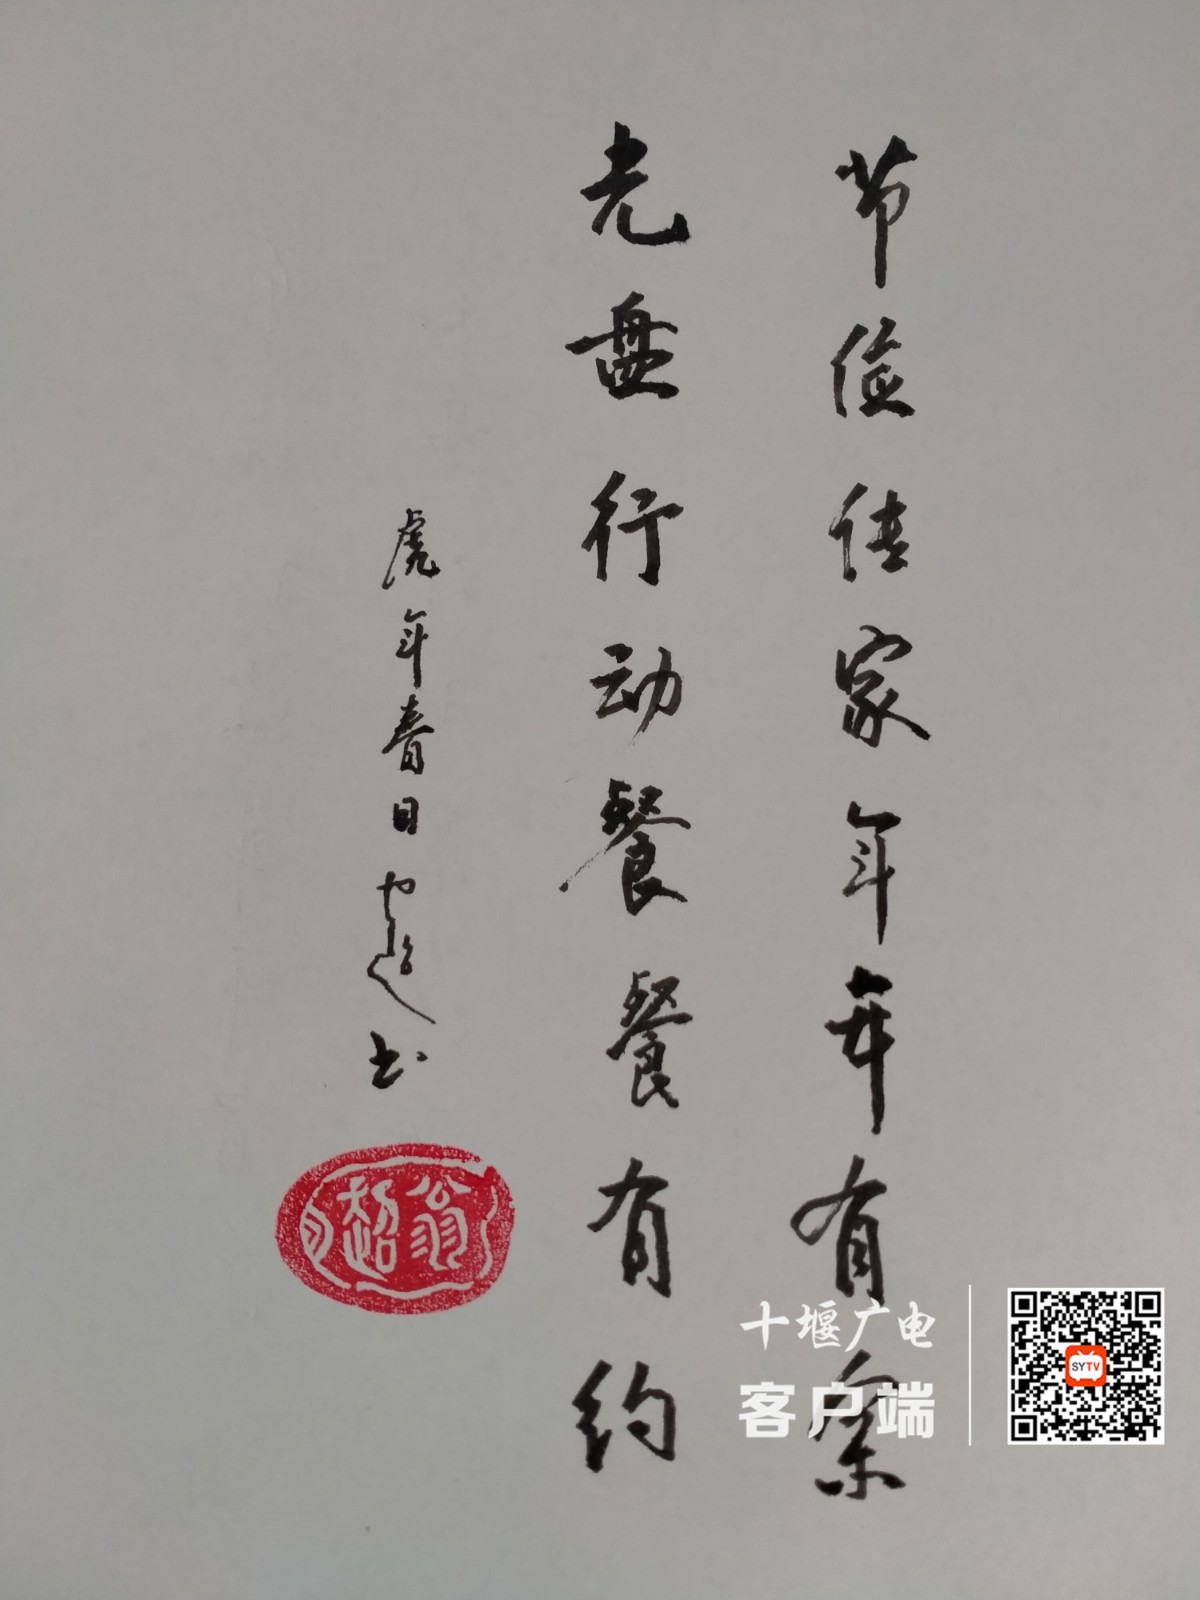 节俭传家年年有
光盘行动餐餐有约
虎年春日 书
翁超
十堰广电
客户端
SYTV